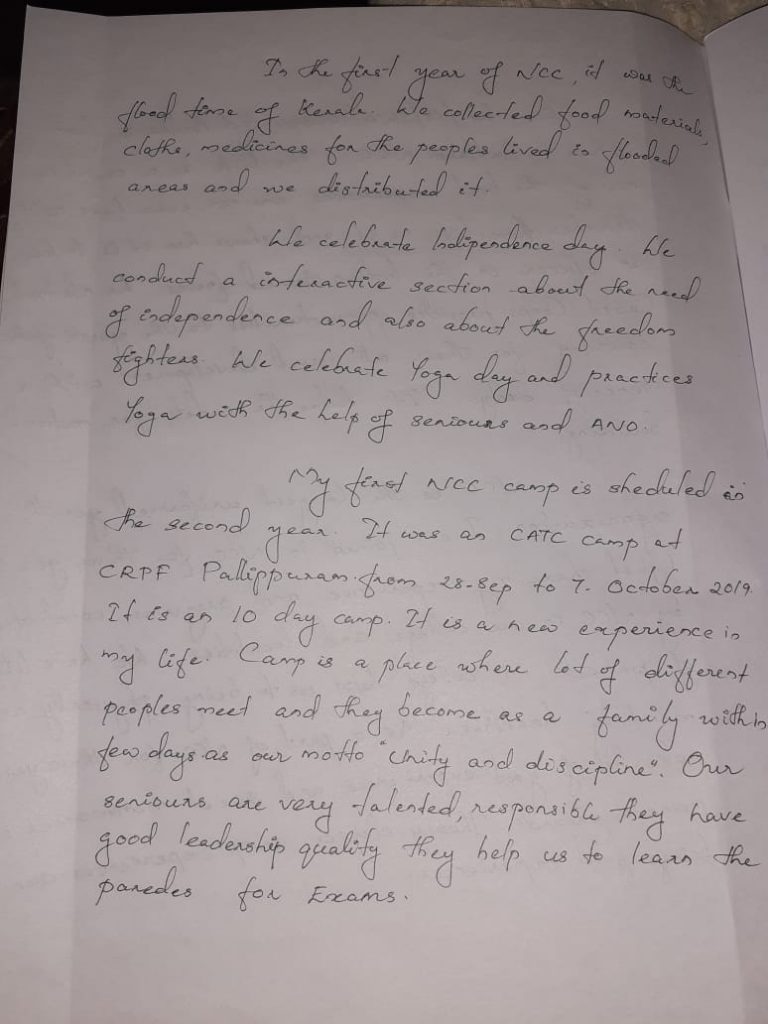 In the first year of NCC, it was the
flood time of Kerala. We collected food materials,
cloths, medicines for the peoples lived in flooded
areas and we distributed it.
We celebrate Indipendence day. We
conduct a interactive section about the need
of independence and also about the freedom
fighters. We celebrate Yoga day and practices
Yoga with the help of seniours and ANO.
My first NCC camp is sheduled in
the second year. It was an CATC camp at
CRPF Pallippuram from 28-Sep to 7. October 2019.
It is an 10 day camp. It is a new experience in
my life. Camp is a place where lot of different
peoples meet and they become as a family within
few days as our motto "Unity and discipline". Our
seniours are very talented, responsible they have
good leadership quality they help us to learn the
paredes for Exams.